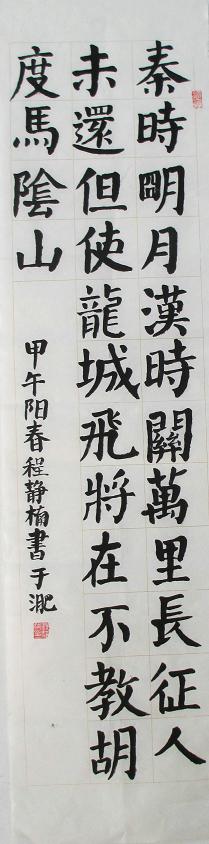 秦時明月漢時關萬里長征人
未還但使龍城飛將在不教胡
度馬陰山
甲午阳春程静楠書于淝